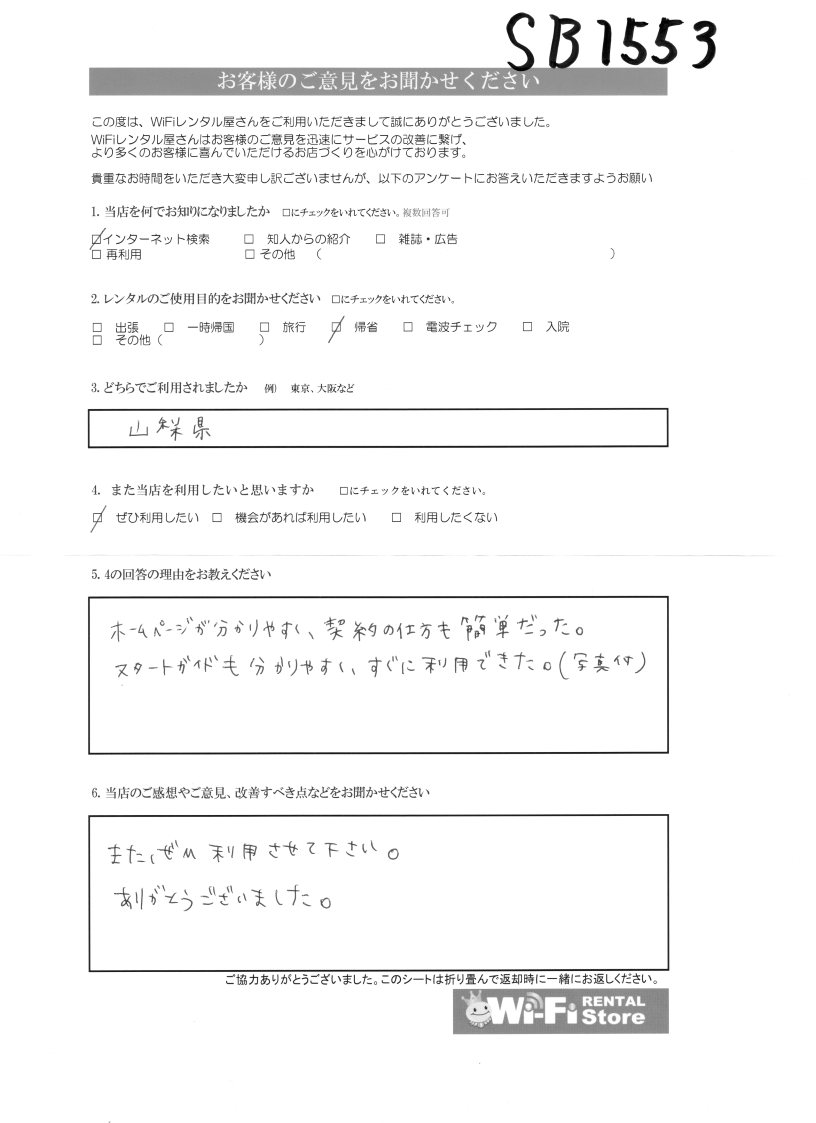 SB1553
お客様のご意見をお聞かせください
この度は、WiFiレンタル屋さんをご利用いただきまして誠にありがとうございました。
WiFiレンタル屋さんはお客様のご意見を迅速にサービスの改善に繋げ、
より多くのお客様に喜んでいただけるお店づくりを心がけております。
貴重なお時間をいただき大変申し訳ございませんが、以下のアンケートにお答えいただきますようお願い
1. 当店を何でお知りになりましたか □にチェックをいれてください。複数回答可
☑インターネット検索 □ 知人からの紹介 □ 雑誌・広告
□ 再利用 □ その他 ( )
2. レンタルのご使用目的をお聞かせください □にチェックをいれてください。
□ 出張 □ 一時帰国 □ 旅行 ☑ 帰省 □ 電波チェック □ 入院
□ その他 ( )
3. どちらでご利用されましたか 例) 東京、大阪など
山梨県
4. また当店を利用したいと思いますか □にチェックをいれてください。
☑ ぜひ利用したい □ 機会があれば利用したい □ 利用したくない
5. 4の回答の理由をお教えください
ホームページが分かりやすく、契約の仕方も簡単だった。
スタートガイドも分かりやすく、すぐに利用できた。(写真付)
6. 当店のご感想やご意見、改善すべき点などをお聞かせください
また、ぜひ利用させて下さい。
ありがとうございました。
ご協力ありがとうございました。このシートは折り畳んで返却時に一緒にお返しください。
Wi-Fi RENTAL Store